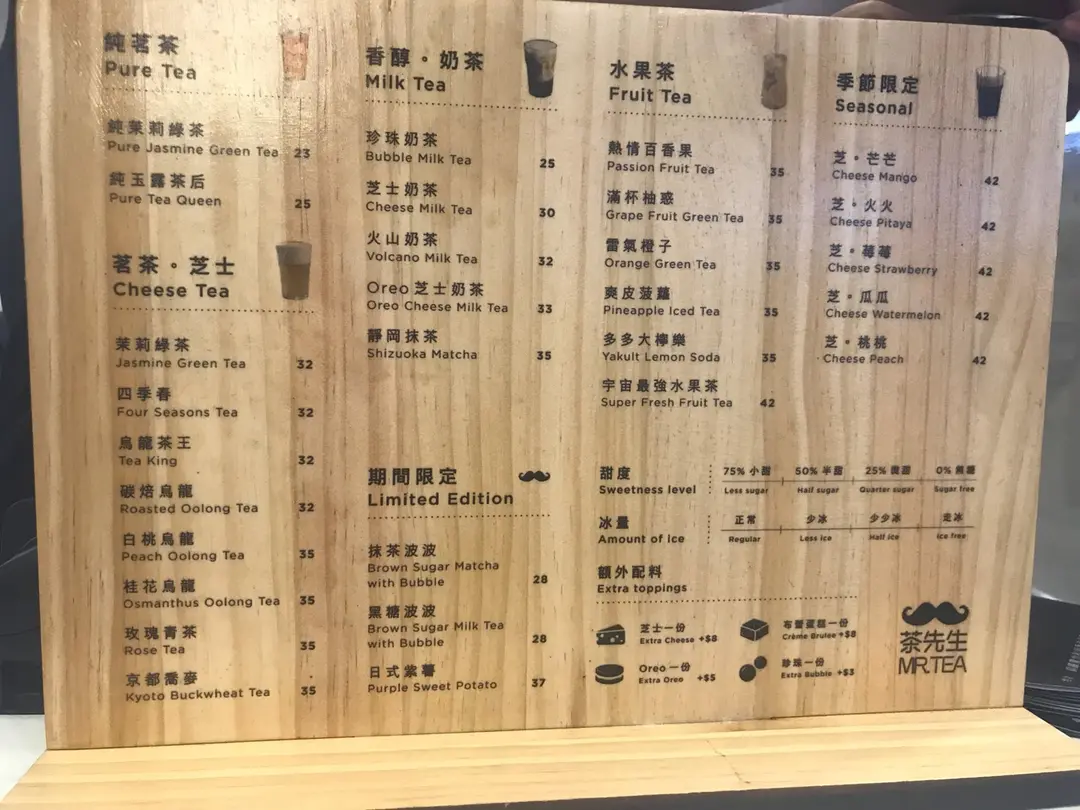 純茗茶
Pure Tea
純茉莉綠茶
Pure Jasmine Green Tea 23
純玉露茶后
Pure Tea Queen 25
茗茶。芝士
Cheese Tea
茉莉綠茶
Jasmine Green Tea 32
四季春
Four Seasons Tea 32
烏龍茶王
Tea King 32
碳焙烏龍
Roasted Oolong Tea 32
白桃烏龍
Peach Oolong Tea 35
桂花烏龍
Osmanthus Oolong Tea 35
玫瑰青茶
Rose Tea 35
京都蕎麥
Kyoto Buckwheat Tea 35
香醇。奶茶
Milk Tea
珍珠奶茶
Bubble Milk Tea 25
芝士奶茶
Cheese Milk Tea 30
火山奶茶
Volcano Milk Tea 32
Oreo芝士奶茶
Oreo Cheese Milk Tea 33
靜岡抹茶
Shizuoka Matcha 35
期間限定
Limited Edition
抹茶波波
Brown Sugar Matcha
with Bubble 28
黑糖波波
Brown Sugar Milk Tea
with Bubble 28
日式紫薯
Purple Sweet Potato 37
水果茶
Fruit Tea
熱情百香果
Passion Fruit Tea 35
滿杯柚惑
Grape Fruit Green Tea 35
雷氣橙子
Orange Green Tea 35
爽皮菠蘿
Pineapple Iced Tea 35
多多大檸樂
Yakult Lemon Soda 35
宇宙最強水果茶
Super Fresh Fruit Tea 42
季節限定
Seasonal
芝。芒芒
Cheese Mango 42
芝。火火
Cheese Pitaya 42
芝。莓莓
Cheese Strawberry 42
芝。瓜瓜
Cheese Watermelon 42
芝。桃桃
Cheese Peach 42
甜度 75% 小甜 50% 半甜 25% 微甜 0% 無糖
Sweetness level Less sugar Half sugar Quarter sugar Sugar free
冰量 正常 少冰 少少冰 走冰
Amount of ice Regular Less ice Half ice Ice free
額外配料
Extra toppings
芝士一份
Extra Cheese +$8
布蕾蛋糕一份
Crème Brulee +$8
Oreo一份
Extra Oreo +$5
珍珠一份
Extra Bubble +$3
茶先生
MR.TEA